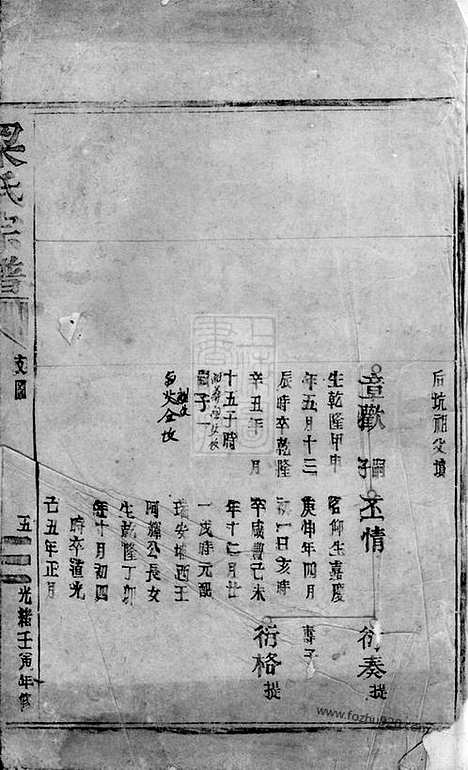 后坑祖父墳
章歡
生乾隆甲申
年五月十三
辰時卒乾隆
辛丑年 月
十五子時
子一
丕情
名仰生嘉慶
庚申年四月
初一日亥時
卒咸豐己未
年十二月廿
一戌時元配
瑞安 西王
阿輝公長女
生乾隆丁卯
年十月初四
時卒道光
己丑年正月
衍奏 提
衍格 提
梁氏宗譜
支圖
五
光緒壬寅年修
www.fozhu920.com